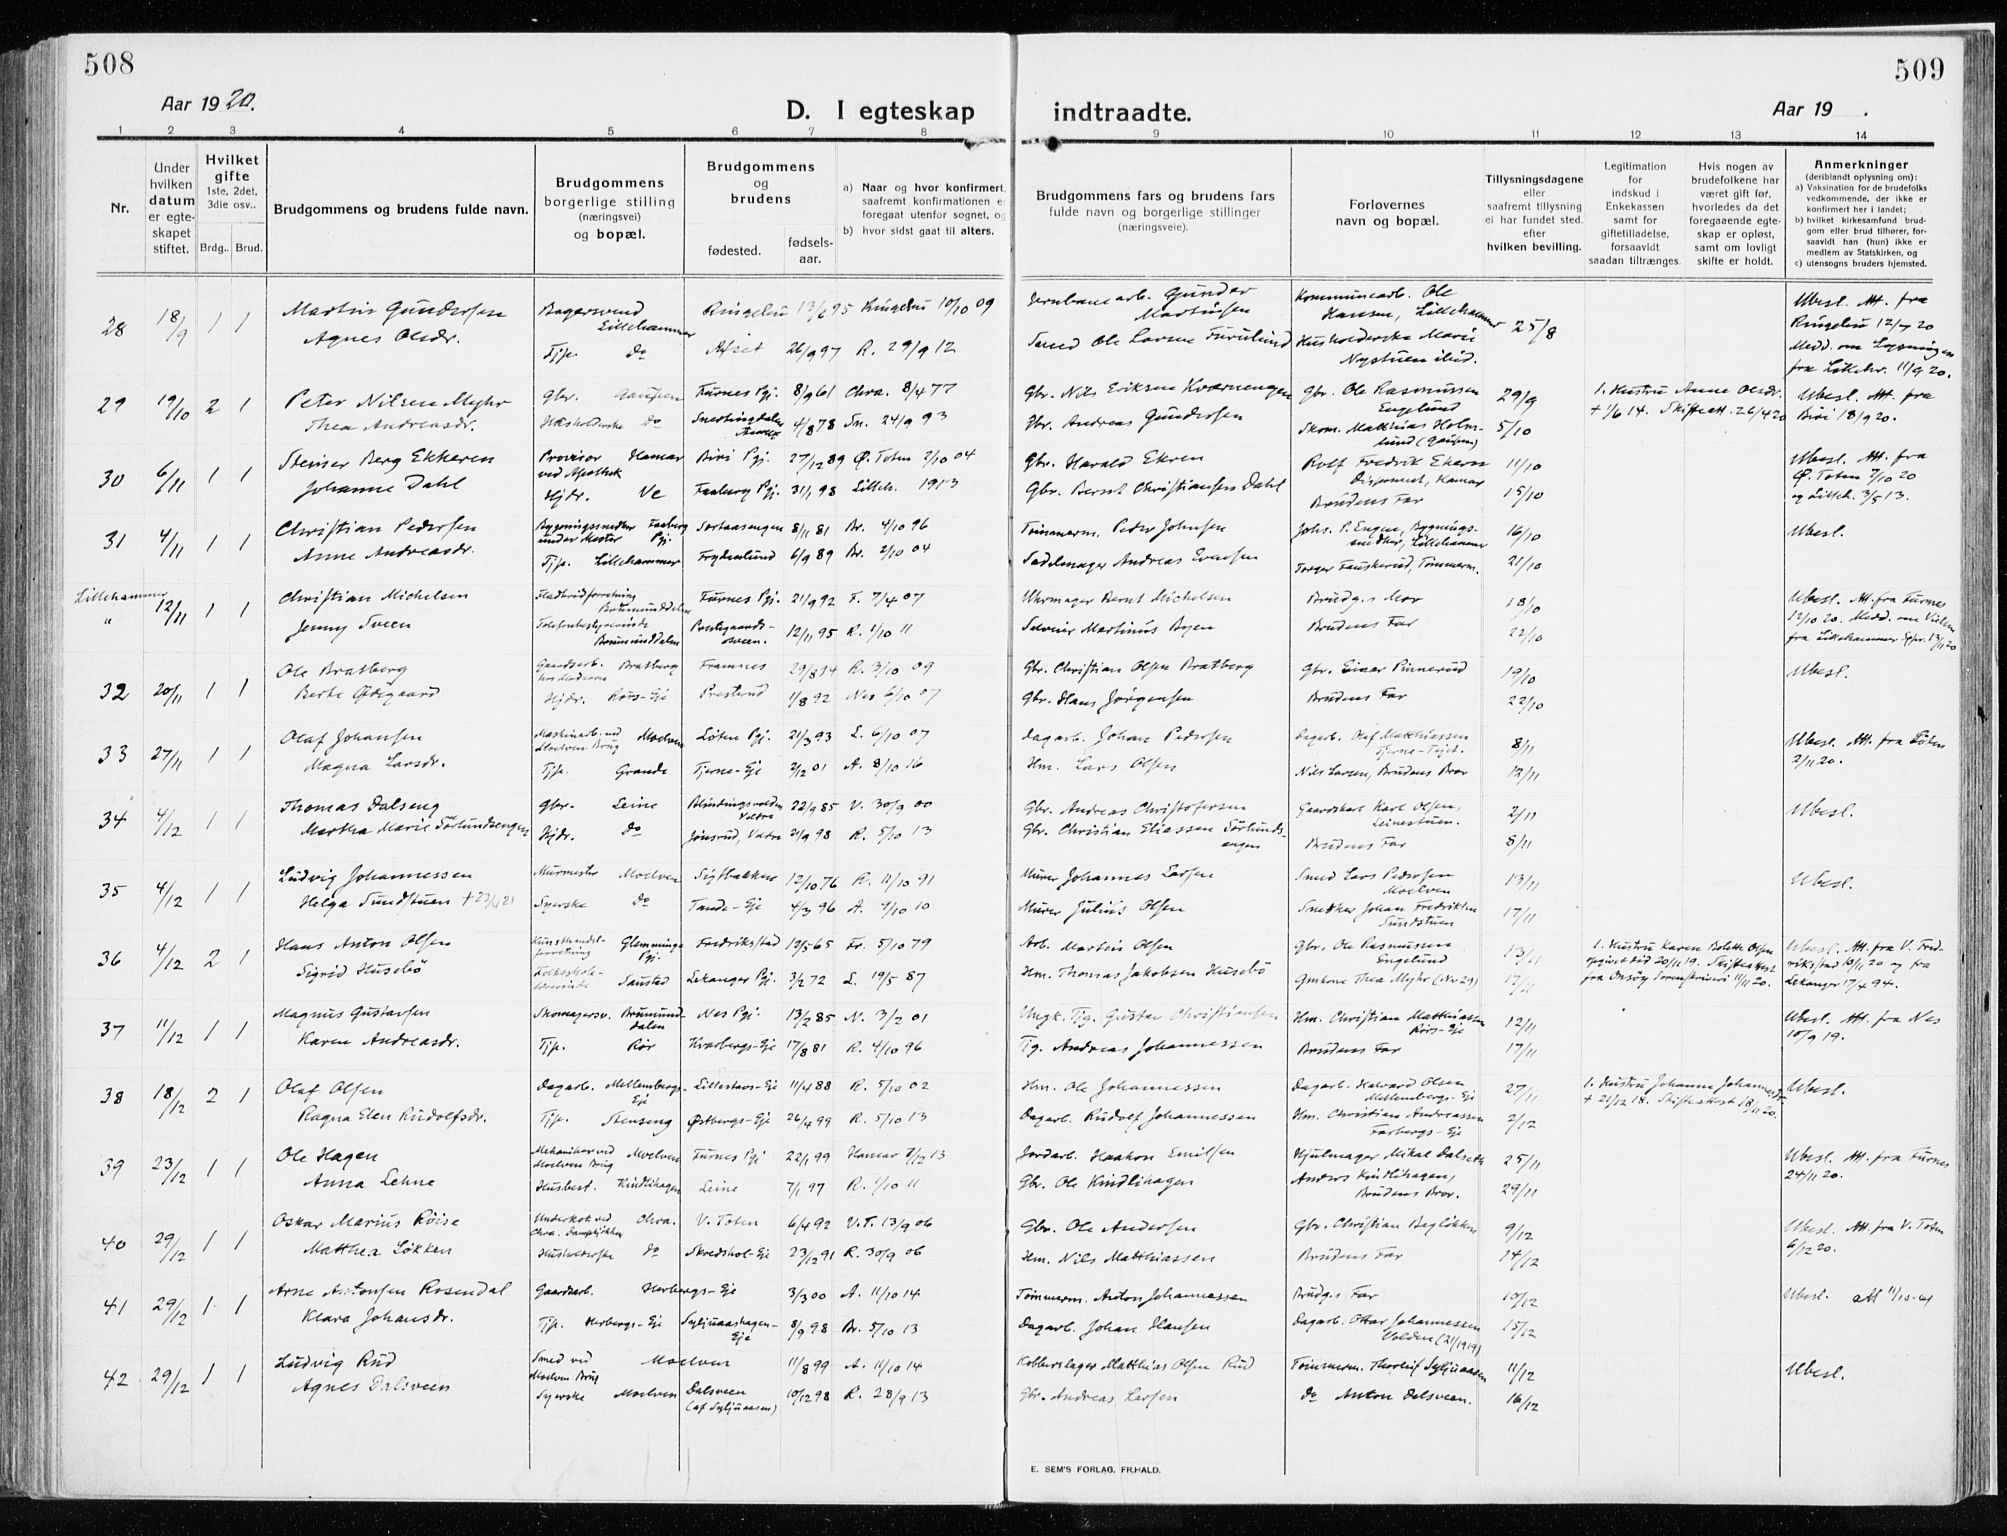 508
509
Aar 1920.
D. I egteskap indtraadte.
Aar 19 .
1 2 3 4 5 6 7 8 9 10 11 12 13 14
Nr.
Under
hvilken
datum
er egte-
skapet
stiftet.
Hvilket
gifte
1ste, 2det,
3die osv..
Brdg.. Brud.
Brudgommens og brudens fulde navn.
Brudgommens
borgerlige stilling
(næringsvei)
og bopæl.
Brudgommens
og
brudens
fødested.
fødsels-
aar.
a) Naar og hvor konfirmert,
saafremt konfirmationen er
foregaat utenfor sognet, og
b) hvor sidst gaat til alters.
Brudgommens fars og brudens fars
fulde navn og borgerlige stillinger
(næringsveie).
Forlovernes
navn og bopæl.
Tillysningsdagene
eller
saafremt tillysning
ei har fundet sted.
efter
hvilken bevilling.
Legitimation
for
indskud i
Enkekassen
samt for
giftetilladelse,
forsaavidt
saadan tiltrænges.
Hvis nogen av
brudefolkene har
været gift før,
hvorledes da det
foregaaende egte-
skap er opløst,
samt om lovligt
skifte er holdt.
Anmerkninger
(deriblandt oplysning om):
a) Vaksination for de brudefolks
vedkommende, der ikke er
konfirmert her i landet;
b) hvilket kirkesamfund brud-
gom eller brud tilhører, for-
saavidt han (hun) ikke er
medlem av Statskirken, og
c) utensogns bruders hjemsted.
28 18/9 1 1 Martin Gundersen Bagersvend Lillehammer Ringebu 13/6 95 Ringebu 10/10 09 Jernbanearb. Gunder Martinsen Kommunearb. Ole Hansen, Lillehammer 25/8 Ubesl. Att. fra Ringebu 12/7 20
Agnes Olsdr. Tjp. Do 26/9 97 R. 29/9 12 Smed Ole Larsen Furulund Husholderske Marie Nystuen ibid. Medd. om Lysningen fra Lillehr. 11/9 20.
29 19/10 2 1 Peter Nilsen Myhr Gbr. Gaupen Furnes Pgj. 8/9 61 Chra. 8/4 77 Gbr. Nils Eriksen Kværnengen Gbr. Ole Rasmussen Engelund 29/9 1. Hustru Anne Olsdr. + 1/6 14. Skifteatt. 26/4 20 Ubesl. Att. fra Biri 18/9 20.
Thea Andreasdr. Husholderske Do Snertingdalen 4/8 78 Sn. 24/9 93 Hr. Andreas Gundersen Skom. Matthias Holmlund (Gaupen) 5/10
30 6/11 1 1 Steiner Berg Ekkeren Provisor ved Apothek Hamar Biri Pgj. 27/12 89 Ø. Toten 2/10 04 Gbr. Harald Ekren Rolf Fredrik Ekern Disponent, Hamar 11/10 Ubesl. Att. fra Ø. Toten 7/10 20
Johanne Dahl Hjdr. Ve Faaberg Pgj. 31/1 98 Lilleh. 1913 Gbr. Bernt Christiansen Dahl Brudens Far 15/10 og Lilleh. 3/5 13.
31 4/11 1 1 Christian Pedersen Bygningssnedker under Mester Faaberg Pgj. Sortaasengen 8/11 81 Br. 4/10 96 Tømmerm. Peder Johnsen Johs. P. Engen, Bygningssnedker, Lillehammer 16/10 Ubesl.
Anne Andreasdr. Tjp. Lillehammer Frydenlund 6/9 89 Br. 2/10 04 Sadelmager Andreas Evensen Torger Fauskerud, Tømmerm. 21/10
Lillehammer
" 12/11 1 1 Christian Michelsen Brumunddalen Furnes Pgj. 21/9 92 F. 7/4 07 Uhrmager Bernt Michelsen Brudg.s Mor 18/10 Ubesl. Att. fra Furnes 12/10 20. Medd. om Vielsen
Jenny Sveen Telefonbestyrerinde Brumunddalen Prestgaardsosveen. 12/11 95 R. 1/10 11 Selveier Martinus Byen Brudens Far 23/10 fra Lillehammer Spr. 13/11 20
32 20/11 1 1 Ole Bratberg Gaardsarb. hos Faderen Bratberg Framnes 29/8 94 R. 3/10 09 Gbr. Christian Olsen Bratberg Gbr. Einar Pinnerud 19/10 Ubesl.
Berte Ødegaard Hjdr. Rörs-Eje Presterud 1/8 92 Nes 6/10 07 Gbr. Hans Jørgensen Brudens Far 22/10
33 27/11 1 1 Olaf Johansen Maskinarb. ved Moelven Brug Moelven Løten Pgj. 21/3 93 L. 6/10 07 Dagarb. Johan Pedersen Dagarb. Olaf Matthiassen Tjerne-Ejet. 8/11 Ubesl. Att. fra Løten 2/11 20.
Magna Larsdr. Tjp. Grande Tjerne-Eje 2/12 01 A. 8/10 16 Hm. Lars Olsen Nils Larsen, Brudens Bror 12/11
34 4/12 1 1 Thomas Dalseng Gbr. Leine Blindingsvolden Valdre 22/9 85 V. 30/9 00 Gbr. Andreas Christofersen Gaardskarl Karl Olsen, Leinestuen. 2/11 Ubesl.
Martha Marie Sörlundsengen Hjdr. Do Jønsrud, Valdre 21/9 98 R. 5/10 13 Gbr. Christian Eliassen Sörlundsengen Brudens Far 8/11
35 4/12 1 1 Ludvig Johannessen Murmester Moelven Sigtbakken 12/10 76 R. 11/10 91 Murer Johannes Larsen Smed Lars Pedersen Moelven 13/11 Ubesl.
Helga Sundstuen + 23/4 21 Syerske Do Tande-Eje 4/3 96 A. 9/10 10 Murer Julius Olsen Snedker Johan Fredriksen Sundstuen 17/11
36 4/12 2 1 Hans Anton Olsen Kunsthandelforretning Glemminge Pgj. Fredrikstad 12/5 65 Fr. 5/10 79 Arb. Martin Olsen Gbr. Ole Rasmussen Engelund 13/11 1. Hustru Karen Bolette Olsen opgivet död 20/11 19. Skifteattest Ubesl. Att. fra V. Fredrikstad 10/11 20 og fra
Sigrid Husebö Folkeskolelærerinde Saustad Lekanger Pgj. 3/2 72 L. 19/5 87 Hm. Thomas Jakobsen Husebö Gmkone Thea Myhr (Nr 29) 17/11 fra Onsøy Sorenskriveri 11/11 20. Lekanger 17/4 94.
37 11/12 1 1 Magnus Gustavsen Skomagersv. Brumunddalen Nes Pgj. 13/2 85 N. 3/2 01 Ungk. Tjg. Gustav Christiansen Hm. Christian Matthiassen Rörs-Eje 12/11 Ubesl. Att. fra Nes 10/9 19.
Karen Andreasdr. Tjp. Rör Kvarbergs-Eje 17/8 81 R. 4/10 96 Tjg. Andreas Johannessen Brudens Far 17/11
38 18/12 2 1 Olaf Olsen Dagarb. Mellembergs-Eje Lillestavs-Eje 11/4 88 R. 5/10 02 Hm. Ole Johannessen Dagarb. Halvard Olsen Mellembergs-Eje 27/11 1. Hustru Johanne Johannesdr. + 21/12 18. Skifteattest 18/11 20. Ubesl.
Ragna Elen Rudolfsdr. Tjp. Stenseng Østbergs-Eje 26/4 99 R. 5/10 13 Dagarb. Rudolf Johannessen Hm. Christian Andreassen Farbergs-Eje 2/12
39 23/12 1 1 Ole Hagen Mekaniker ved Moelven Brug Moelven Furnes Pgj 22/1 99 Hamar 7/12 13 Jordarb. Haakon Emilsen Hjulmager Mikal Dalseth 25/11 Ubesl. Att. fra Furnes 24/11 20.
Anna Lehne Husbest. Kindlihagen Leine 7/1 97 R. 1/10 11 Gbr. Ole Kindlihagen Anders Kindlihagen, Brudens Bror. 29/11
40 29/12 1 1 Oskar Marius Röise Underkok ved Chra. Dampkjökken Chra. V. Toten 6/4 92 V.T. 13/9 06 Gbr. Ole Andersen Gbr. Christian Baglökken 9/12 Ubesl. Att. fra V. Toten 6/12 20.
Matthea Løkken Husholderske Do Skredshol-Eje 23/12 91 R. 30/9 06 Hm. Nils Matthiassen Brudens Far 14/12
41 29/12 1 1 Arne Antonsen Rosendal Gaardsarb. Herbergs-Eje 3/3 00 A. 11/10 14 Tømmerm. Anton Johannessen Brudg.s Far 10/12 Ubesl.
Klara Johansdr. Tjp. Herbergs-Eje Syljuaashagen-Eje 8/9 98 Br. 5/10 13 Dagarb. Johan Hansen Dagarb. Ottar Johannessen Volden (21/1919) 15/12
42 29/12 1 1 Ludvig Rud Smed ved Moelven Brug Moelven 11/8 99 A. 11/10 14 Kobberslager Matthias Olsen Rud Tømmerm. Thorleif Syljuaasen 11/12 Ubesl.
Agnes Dalsveen Syerske Moelven Dalsveen (af Syljuaasen) 10/12 98 R. 28/9 13 Gbr. Andreas Larsen Do Anton Dalsveen. 16/12
E. SEM'S FORLAG, FR.HALD.